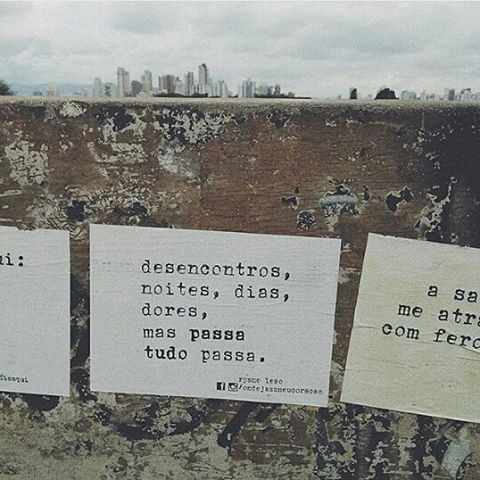 ui:
fizaqui
desencontros,
noites, dias,
dores,
mas passa
tudo passa.
ryane leao
/ondejazzmeucoracao
a sa
me atra
com feroc